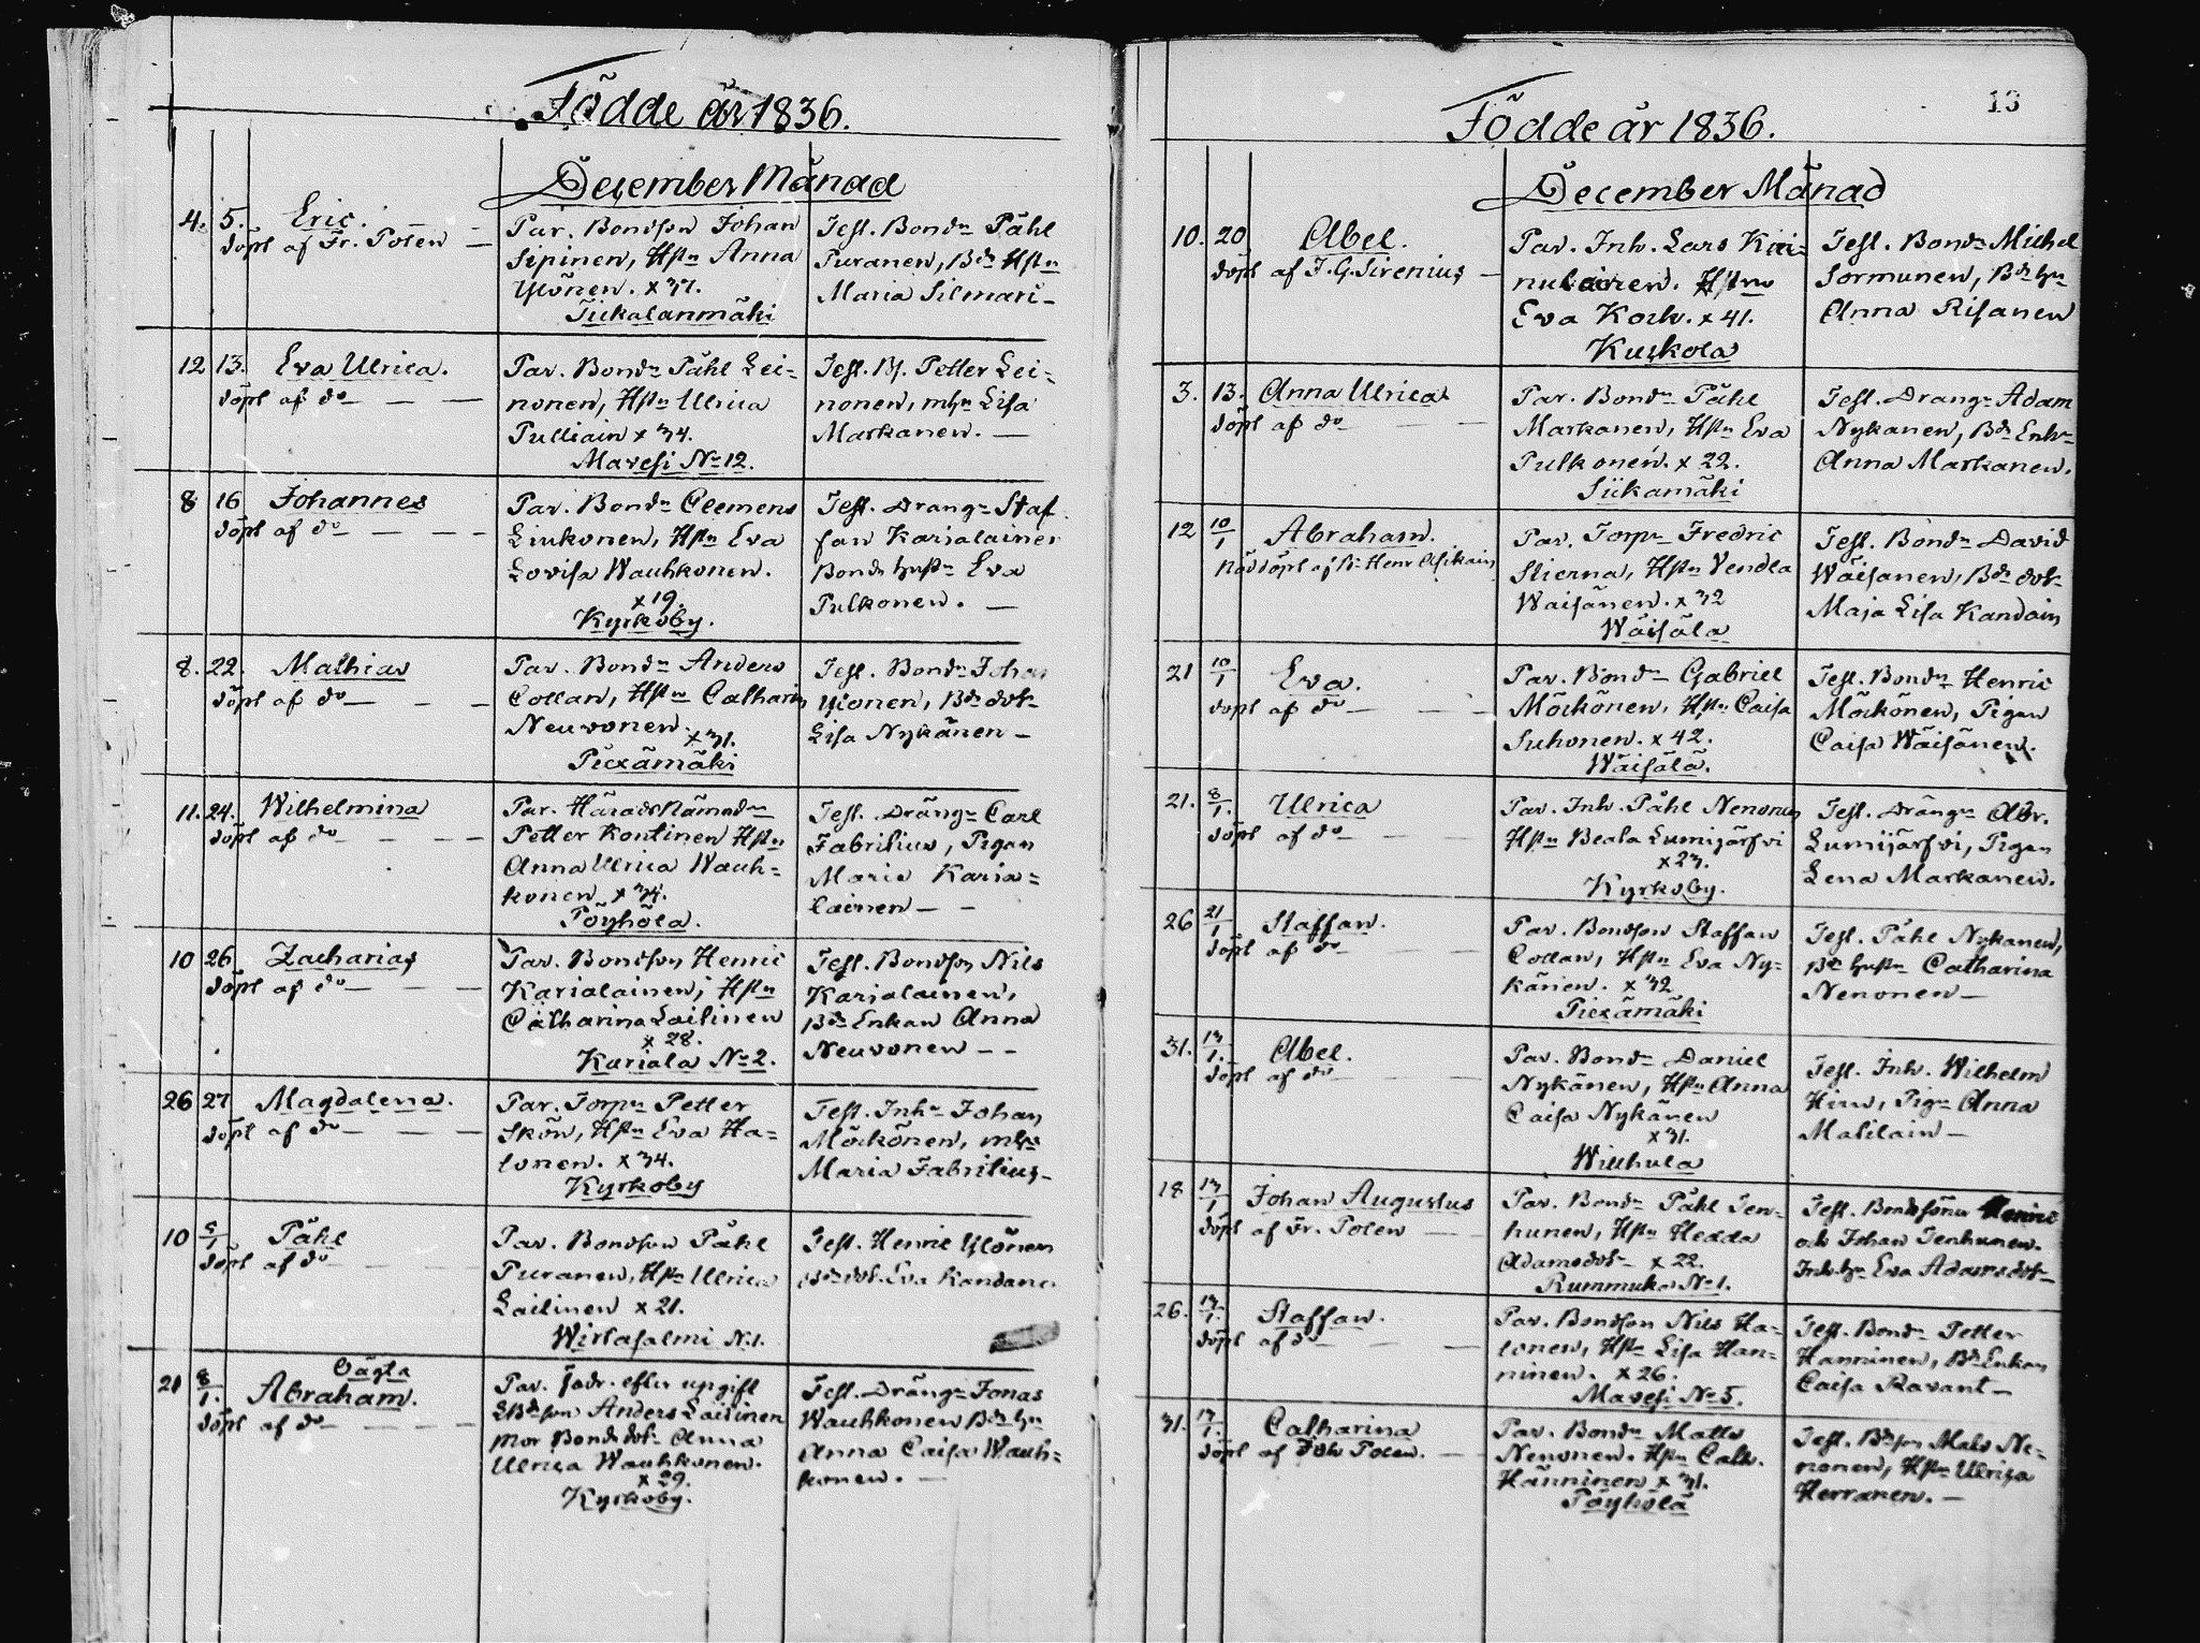 Födde år 1836.
December Månad
4. 5. Eric.
döpt af Fr. Polen
Par. Bondson Johan
Sipinen, Hstn Anna
Ylönen. x 37.
Tiikalanmäki
Test. Bondn Påhl
Puranen, Bds Hstn
Maria Silmari-
12 13. Eva Ulrica.
döpt af do
Par. Bondn Påhl Lei=
nonen, Hstn Ulrica
Pulliain x 34.
Mavesi No 12.
Test. Bf. Petter Lei=
nonen, mhn Lisa
Markanen.
8 16 Johannes
döpt af do
Par. Bondn Clemens
Liukonen, Hstn Eva
Lovisa Wauhkonen.
x 19.
Kyrkoby.
Test. Drangn Staf
fan Karialainen
Bonds hustn Eva
Pulkonen.
8. 22. Mathias
döpt af do
Par. Bondn Anders
Collan, Hstn Catharin
Neuvonen.
x 31.
Piexämäki
Test. Bondn Johan
Ylönen, Bds dotr
Lisa Nykänen
11. 24. Wilhelmina
döpt af do
Par. Häradsnämndn
Petter Kontinen Hstn
Anna Ulrica Wauh=
konen x 34.
Pöyhölä.
Test. Drängn Carl
Fabritius, Pigan
Maria Karia=
lainen
10 26 Zacharias
döpt af do
Par. Bondson Henric
Karialainen, Hstn
Catharina Laitinen
x 28.
Kariala No 2.
Test. Bondson Nils
Karialainen,
Bds Enkan Anna
Neuvonen
26 27 Magdalena.
döpt af do
Par. Torpn Petter
Skön, Hstn Eva Ha=
lonen. x 34.
Kyrkoby
Test. Inhn Johan
Möckönen, mhn
Maria Fabritius
10 5/1 Påhl
döpt af do
Par. Bondson Påhl
Puranen, Hstn Ulrica
Laitinen x 21.
Wirtasalmi N.1.
Test. Henric Ylönen
Bds dot. Eva Kandane
21 8/1. Oägta
Abraham.
döpt af do
Par. fadr. efter upgift
Bdson Anders Laitinen
Mor Bonds dotr Anna
Ulrica Wauhkonen.
x 29.
Kyrkoby.
Test. Drängn Jonas
Wauhkonen Bds hn
Anna Caisa Wauh=
konen.
13
Födde år 1836.
December Månad
10. 20 Abel.
döpt af J. G. Sirenius
Par. Inh. Lars Kai=
nulainen. Hstru
Eva Kock. x 41.
Kuskola
Test. Bondn Michel
Sormunen, Bds hn
Anna Risanen
3. 13. Anna Ulrica
döpt af do
Par. Bondn Påhl
Markanen, Hstn Eva
Pulkonen. x 22.
Siikamäki
Test. Drangn Adam
Nykanen, Bds Enkn
Anna Markanen.
12 10/1 Abraham.
Nöddöpt af Henr
Par. Torpn Fredric
Stierna, Hstn Vendla
Waisänen. x 32
Wäisälä
Test. Bondn David
Wäisanen, Bds dotr
Maja Lisa Kandain
21 10/1 Eva.
döpt af do
Par. Bondn Gabriel
Möckönen, Hstn Caisa
Suhonen. x 42.
Wäisälä.
Test. Bondn Henric
Möckönen, Pigan
Caisa Wäisänen.
21. 8/1. Ulrica
döpt af do
Par. Inh. Påhl Nenonen
Hstn Beata Lumijärfvi
x 23.
Kyrkoby.
Test. Drängn Abr.
Lumijärfvi, Pigan
Lena Markanen.
26 21/1 Staffan.
döpt af do
Par. Bondson Staffan
Collan, Hstn Eva Ny=
känen. x 32
Piexämäki
Test. Påhl Nykanen,
Bds hustn Catharina
Nenonen
31. 13/1. Abel.
döpt af do
Par. Bondn Daniel
Nykänen, Hstn Anna
Caisa Nykänen
x 31.
Willhula
Test. Inh. Wilhelm
Hirn, Pign Anna
Matilain
18 13/1 Johan Augustus
döpt af Fr. Polen
Par. Bondn Påhl Ten=
hunen, Hstn Hedda
Adamsdotr x 22.
Rummuka No 1.
Test. Bondsöner Henric
och Johan Tenhunen.
Inh. hn Eva Adamsdotr
26. 13/1. Staffan.
döpt af do
Par. Bondson Nils Ha=
lonen, Hstn Lisa Han=
ninen. x 26.
Mavesi No 5.
Test. Bondn Petter
Hanninen, Bds Enkan
Caisa Ravant
31. 13/1. Catharina
döpt af Fr. Polen.
Par. Bondn Matts
Nenonen. Hstn Cath.
Hänninen x 31.
Pöyhölä
Test. Bdson Mats Ne=
nonen, Hstn Ulrica
Herranen.